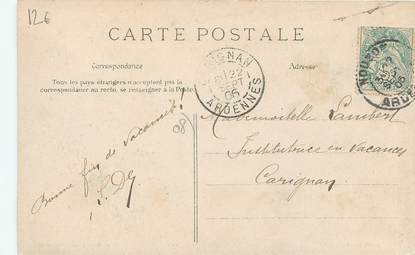 126
CARTE POSTALE
Correspondance
Adresse
Tous les pays étrangers n'acceptent pas la
correspondance au recto, se renseigner à la Poste
CARIGNAN
22
SEPT
06
ARDENNES
Mademoiselle Lambert
Institutrice en Vacances
Carignan
Bonne fin de vacances!